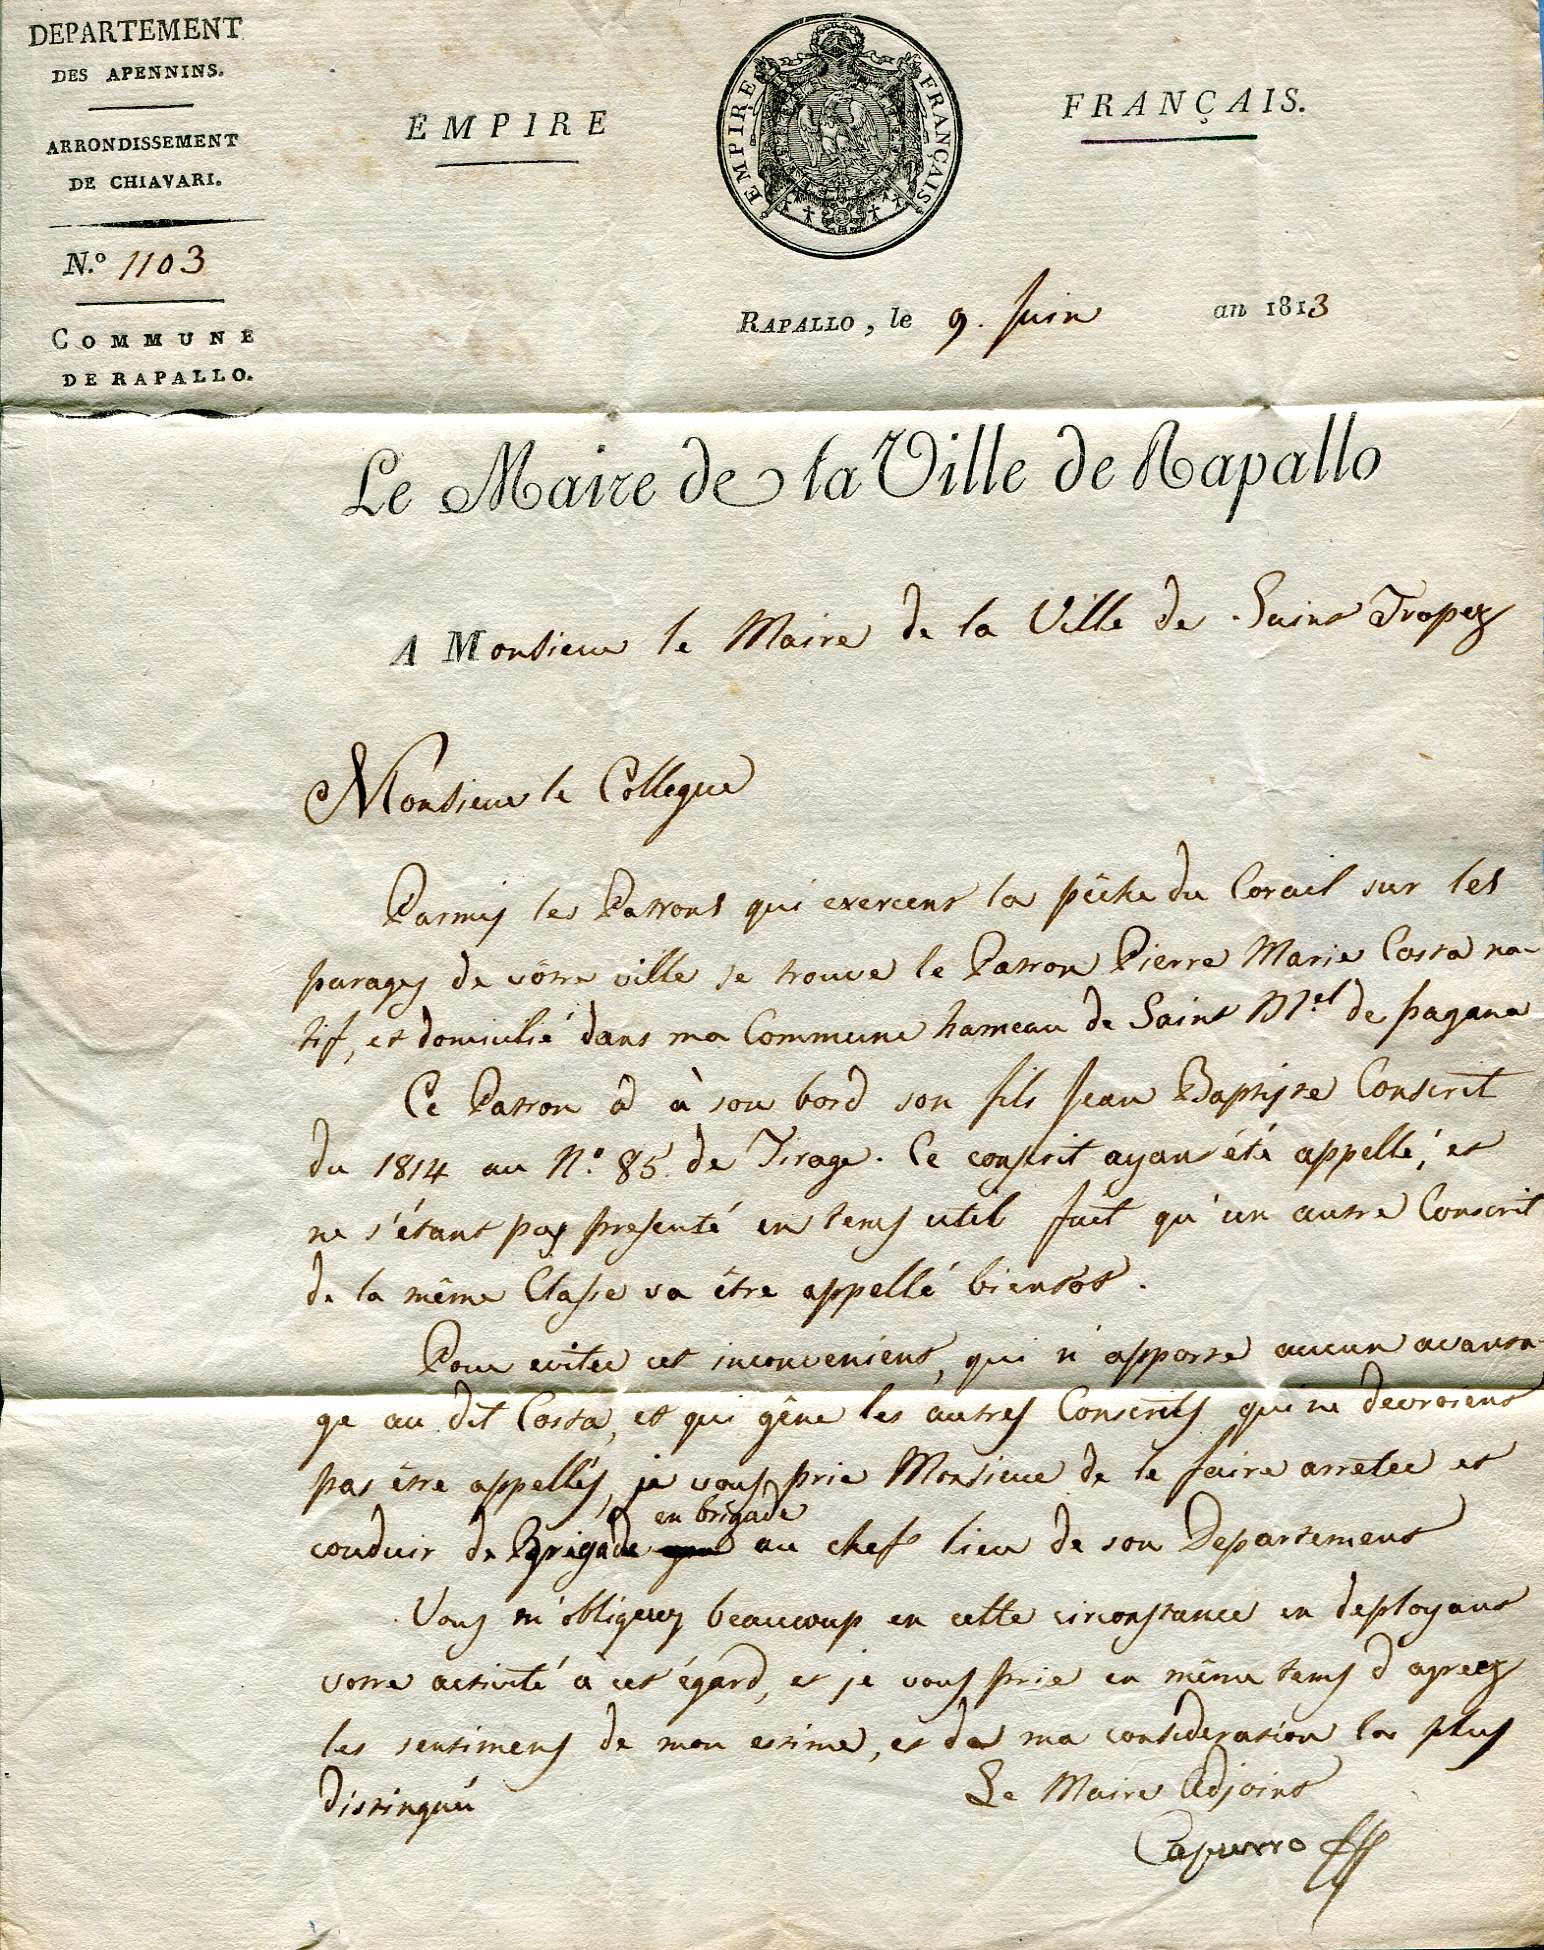 DEPARTEMENT
DES APENNINS.
ARRONDISSEMENT
DE CHIAVARI.
N.º 1103
COMMUNE
DE RAPALLO.
EMPIRE
EMPIRE FRANÇAIS
FRANÇAIS.
RAPALLO, le 9. Juin an 1813
Le Maire de la Ville de Rapallo
A Monsieur le Maire de la Ville de Saint Tropez
Monsieur le Collegue
Parmis les Patrons qui exercent la pêche du Corail sur les
parages de vôtre ville se trouve le Patron Pierre Marie Costa na-
tif, et domicilié dans ma Commune hameau de Saint M.el de pagana
Ce Patron à à son bord son fils Jean Baptiste Conscrit
du 1814 au N.º 85 de Tirage. Ce conscrit ayant été appellé, et
ne s'étant pas presenté en tems util fait qu'un autre Conscrit
de la même Classe va être appellé bientot.
Pour eviter cet inconvenient, qui n'apporte aucun avanta-
ge au dit Costa, et qui gêne les autres Conscrits qui ne devroient
pas être appellés, je vous prie Monsieur de le faire arreter et
conduir de Brigade en brigade au chef lieu de son Departement
Vous m'obligerez beaucoup en cette circonstance en deployant
votre activité à cet égard, et je vous prie en même tems d'agreez
les sentimens de mon estime, et de ma consideration la plus
distingué
Le Maire Adjoint
Capurro